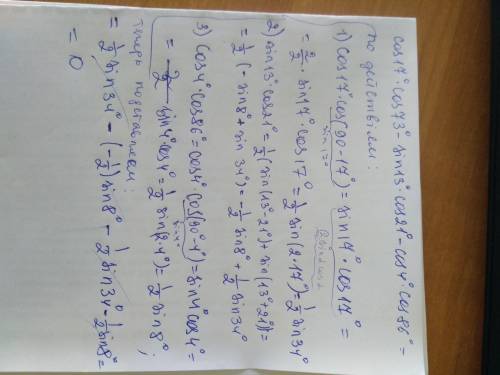 cos17°·cos73°-sin13°·cos21°-cos4°·cos86°=
по действиям:
1) cos17°·cos(90-17°)=sin17°·cos17°=
sin17°
=2/2·sin17°·cos17°=1/2 sin(2·17°)=1/2 sin34°
2sinαcosα
2) sin13°·cos21°=1/2(sin(13°-21°)+sin(13°+21°))=
=1/2(-sin8°+sin34°)=-1/2 sin8°+1/2 sin34°
3) cos4°·cos86°=cos4°·cos(90°-4°)=sin4°cos4°=
sin4°
= sin4°cos4°=1/2 sin(2·4°)=1/2 sin8°;
теперь подставляем:
=1/2 sin34°-(-1/2)sin8°-1/2 sin34°-1/2 sin8°=
=0